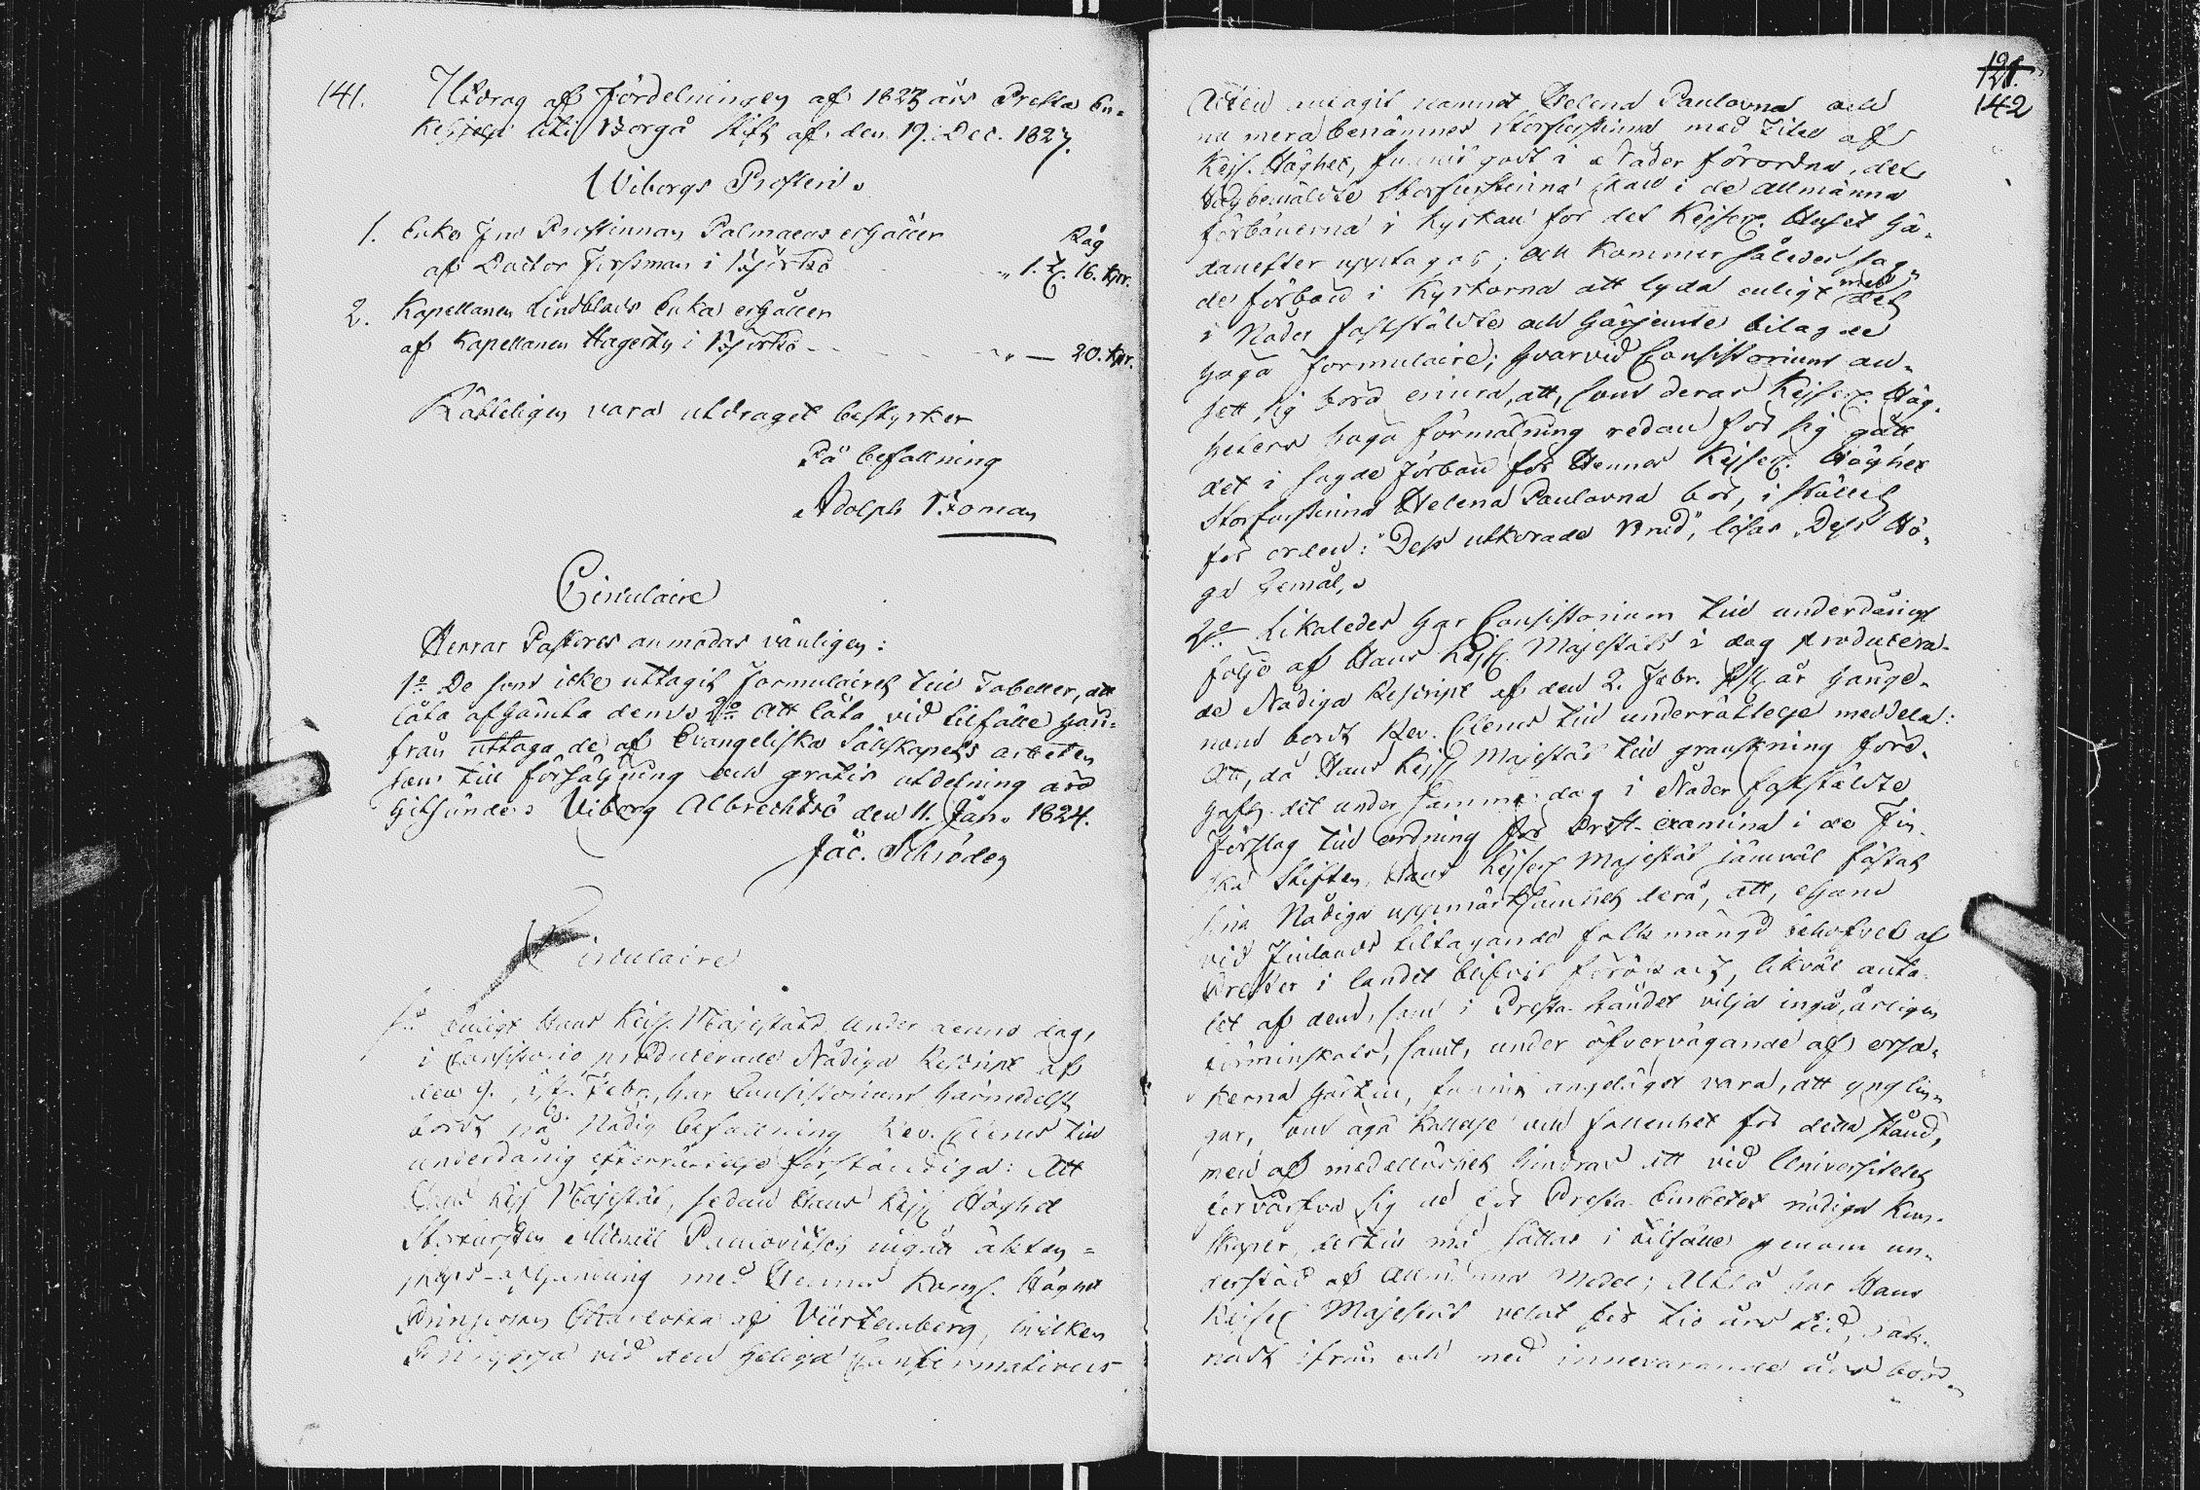 141.
Utdrag af Fördelningen af 1823 års Presta En-
kehjelp uti Borgå stift af den 17. Dec. 1823.
Wiborgs Prosteri.
1. Enke Fru Prostinnan Palmaeus erhåller Råg
af Doctor Forssman i Björkö - - - " 1. T. 16. kpr.
2. Kapellanen Lindblads Enka erhåller
af Kapellanen Hagerty i Björkö - - - " — 20. kpr.
Rätteligen vara utdraget bestyrker
På befallning
Adolph Roman
Circulaire
Herrar Pastores anmodas vänligen:
1o De som icke uttagit Formulairet till Tabeller, att
låta afhämta dem. 2o Att låta vid tilfälle här-
från uttaga de af Evangeliska Sällskapets arbeten
som till försäljning och gratis utdelning äro
hitsände. Viborg Albrechtsö den 11. Jan. 1824.
Jac. Schröder
Circulaire
1o Enligt Hans Keis. Majestäts under denna dag,
i Consistorio producerade Nådiga Rescript af
den 9. sistl. Febr., har Consistorium härmedelst
bordt på Nådig befallning Rev. Clerus till
underdånig efterrättelse förständiga: Att
Hans Kejs. Majestät, sedan Hans Kejs. Höghet
Storfursten Michaël Paulovitsch ingått äkten-
skaps-förbindning med Hennes Kongl. Höghet
Prinsessan Charlotta af Würtemberg, hvilken
Prinsessa vid den heliga Confirmations
121.
142
Acten antagit namnet Helena Paulovna och
nu mera benämnes Storfurstinna med Titel af
Kejs. Höghet, funnit godt i Nåder förordna, det
Högbemäldte Storfurstinna skall i de allmänna
förbönerna i Kyrkan för det Kejserl. Huset hä-
danefter upptagas; och kommer således sag-
de förbön i Kyrkorna att lyda enligt med det
i Nåder fastställdte och härjemte bilagde
höga formulaire; hvarvid Consistorium an-
sett sig böra erinra, att, som deras Kejserl. Hög-
heters höga förmälning redan för sig gått
det i sagde förbön för Hennes Kejserl. Höghet
Storfurstinna Helena Paulovna bör, i stället
för orden: "Dess utkorade Brud", läsas "Dess Hö-
ga Gemål".
2o Likaledes har Consistorium till underdånig
följe af Hans Kejs. Majestäts i dag producera-
de Nådiga Rescript af den 2. Febr. sistl. år härige-
nom bordt Rev. Clerus till underrättelse meddela:
Att, då Hans Kejs. Majestät till granskning före-
haft det under samma dag i Nåder fastställdte
Förslag till ordning för Prest-examina i de Fin-
ska Stiften, Hans Kejserl. Majestät jämväl fästat
sin Nådiga uppmärksamhet derå, att, ehuru
vid Finlands tilltagande folkmängd behofvet af
Prester i landet blifvit förökadt, likväl anta-
let af dem, som i Presta-ståndet vilja ingå, årligen
förminskats, samt, under öfvervägande af orsa-
kerna härtill, funnit angelägit vara, att yngling-
gar, som äga kallelse och fallenhet för detta stånd,
men af medellöshet hindras att vid Universitetet
förvärfva sig de för Presta-Embetet nödiga kun-
skaper, dertill må sättas i tilfälle genom un-
derstöd af Allmänna Medel; Alltså har Hans
Kejserl. Majestät velat för tio års tid, räk-
nadt ifrån och med innevarande års börd.